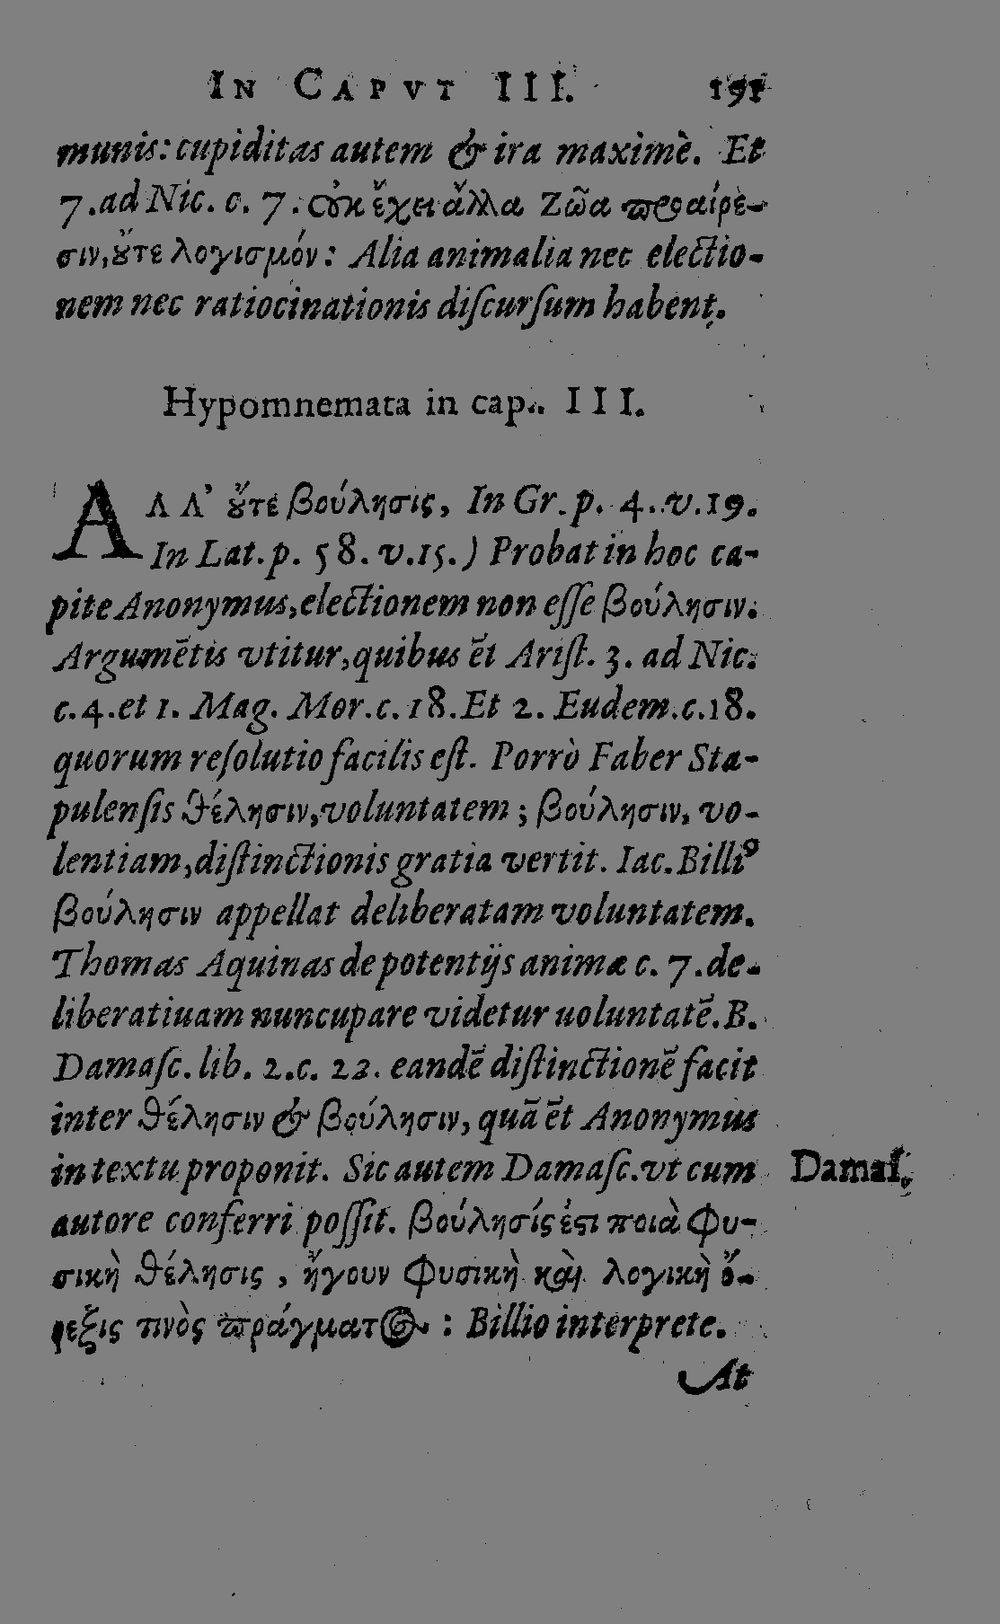 IN CAPVT III. 191
munis: cupiditas autem & ira maximè. Et
7. ad Nic. c. 7. Οὐκ ἔχει ἄλλα ζῶα προαίρε-
σιν, ὄυτε λογισμόν: Alia animalia nec electio-
nem nec ratiocinationis diſcurſum habent.
Hypomnemata in cap. III.
ΑΛΛ' ὄυτε βούλησις, In Gr. p. 4. v. 19.
In Lat. p. 58. v. 15.) Probat in hoc ca-
pite Anonymus, electionem non eſſe βούλησιν.
Argumētis vtitur, quibus ēt Ariſt. 3. ad Nic.
c. 4. et 1. Mag. Mor. c. 18. Et 2. Eudem. c. 18.
quorum reſolutio facilis eſt. Porrò Faber Sta-
pulenſis θέλησιν, voluntatem; βούλησιν, vo-
lentiam, diſtinctionis gratia vertit. Iac. Billi⁹
βούλησιν appellat deliberatam voluntatem.
Thomas Aquinas de potentijs animæ c. 7. de-
liberatiuam nuncupare videtur uoluntatē. B.
Damaſc. lib. 2. c. 22. eandē diſtinctionē facit
inter θέλησιν & βούλησιν, quā ēt Anonymus
in textu proponit. Sic autem Damaſc. vt cum
Damaſ.
autore conferri poſſit. βούλησίς ἐςι ποιὰ φυ-
σικὴ θέλησις, ἤγουν φυσικὴ καὶ λογικὴ ὄ-
ρεξις τινὸς πράγματος: Billio interprete.
At